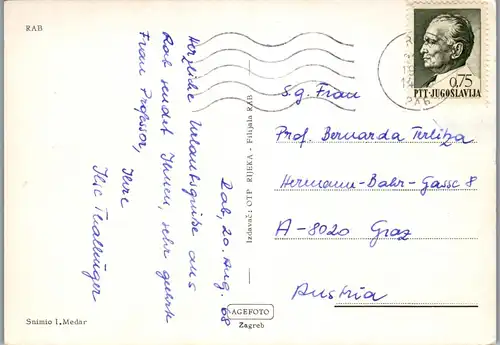 RAB
Rab, 20. Aug. 68
Herzliche Urlaubsgrüße aus
Rab sendet Ihnen, sehr geehrte
Frau Professor,
Ihre
Ilse
Snimio I. Medar
Izdavač: OTP RIJEKA - Filijala RAB
AGEFOTO
Zagreb
0,75
PTT JUGOSLAVIJA
RAB
S.g. Frau
Prof. Bernarda Terlitza
Hermann-Bahr-Gasse 8
A-8020 Graz
Austria